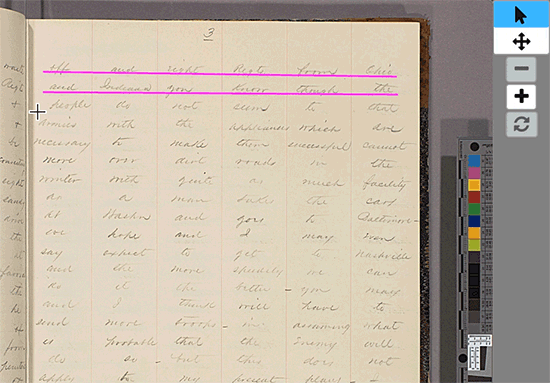 3
off and right Regts from Ohio
and Indiana you know though the
people do not seem to that
armies with the appliances which are
necessary to make them successful cannot
move over dirt roads in the
winter with quite as much facility
as a man take the cars
at Washn and goes to Baltimore -
we hope and I may even
say expect to get to Nashville
and the more speedily we can
do it the better - you may
and I think will have to
send more troops - in assuming what
is probable that the Enemy will
do so - but this does not
apply to my present plans -